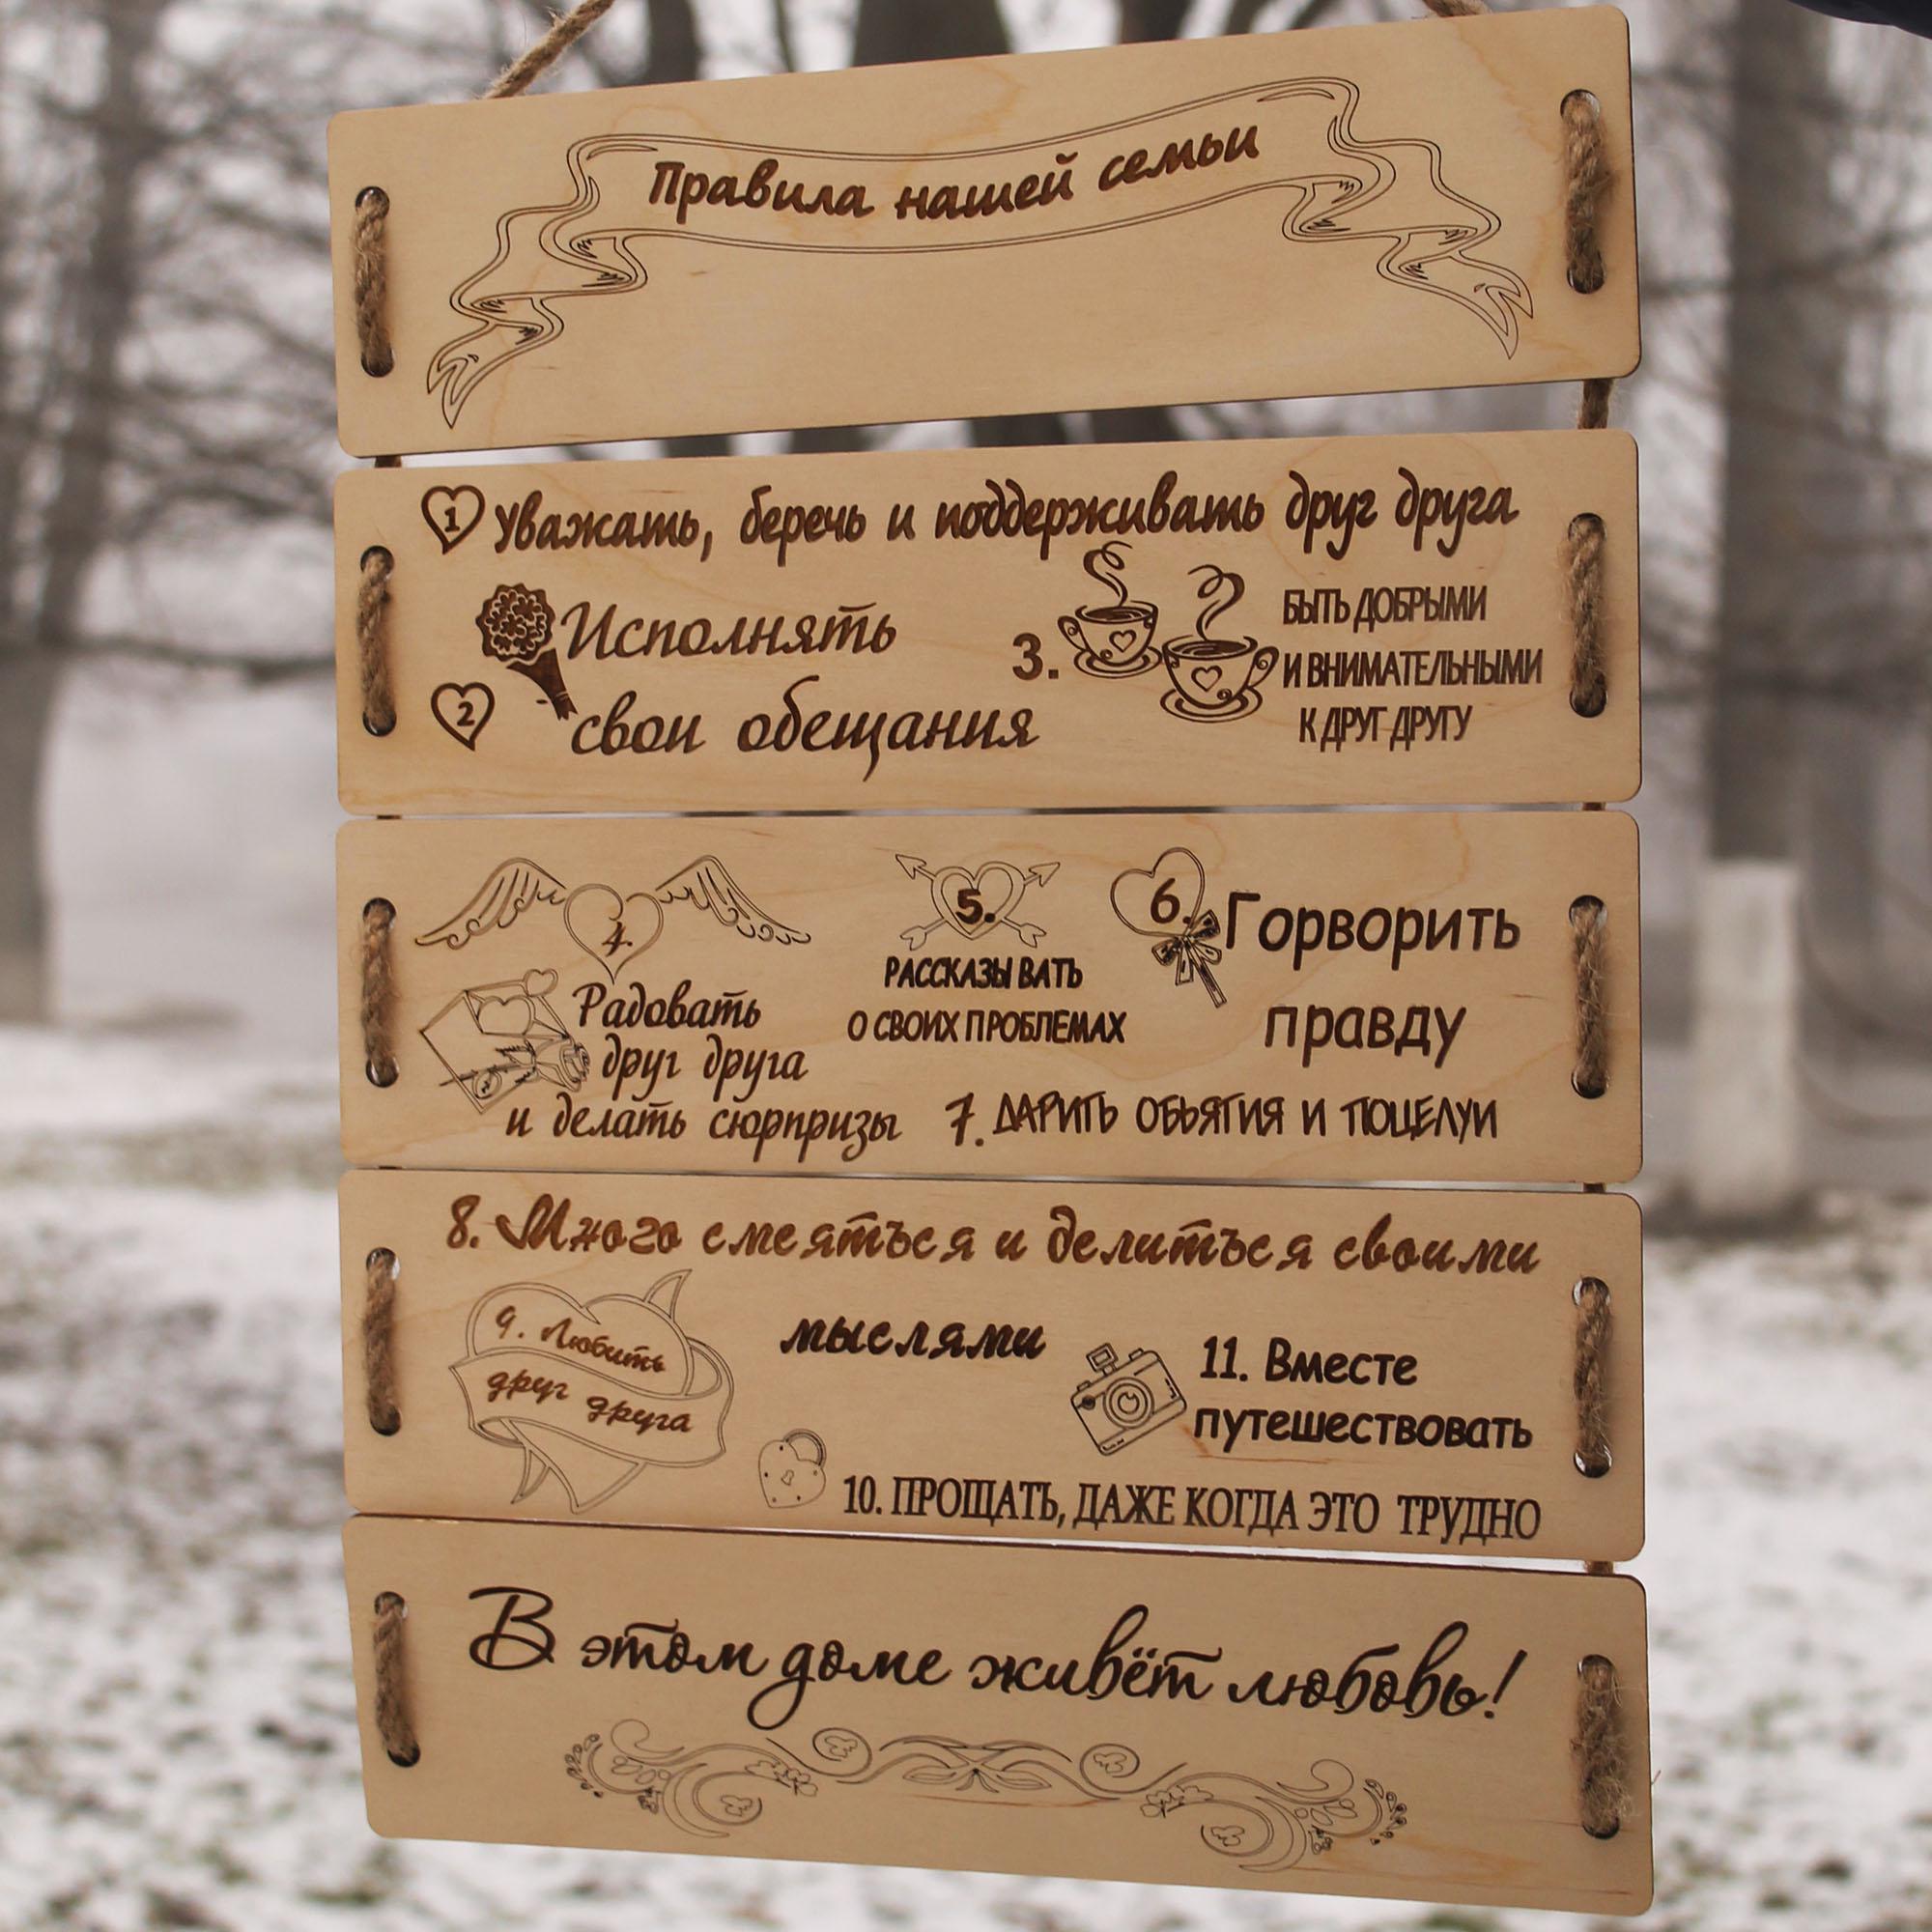 Правила нашей семьи
1 Уважать, беречь и поддерживать друг друга
2 Исполнять
свои обещания
3. БЫТЬ ДОБРЫМИ
И ВНИМАТЕЛЬНЫМИ
К ДРУГ ДРУГУ
4.
Радовать
друг друга
и делать сюрпризы
5.
РАССКАЗЫВАТЬ
О СВОИХ ПРОБЛЕМАХ
6. Горворить
правду
7. ДАРИТЬ ОБЬЯТИЯ И ПОЦЕЛУИ
8. Много смеяться и делиться своими
мыслями
9. Любить
друг друга
10. ПРОЩАТЬ, ДАЖЕ КОГДА ЭТО ТРУДНО
11. Вместе
путешествовать
В этом доме живёт любовь!